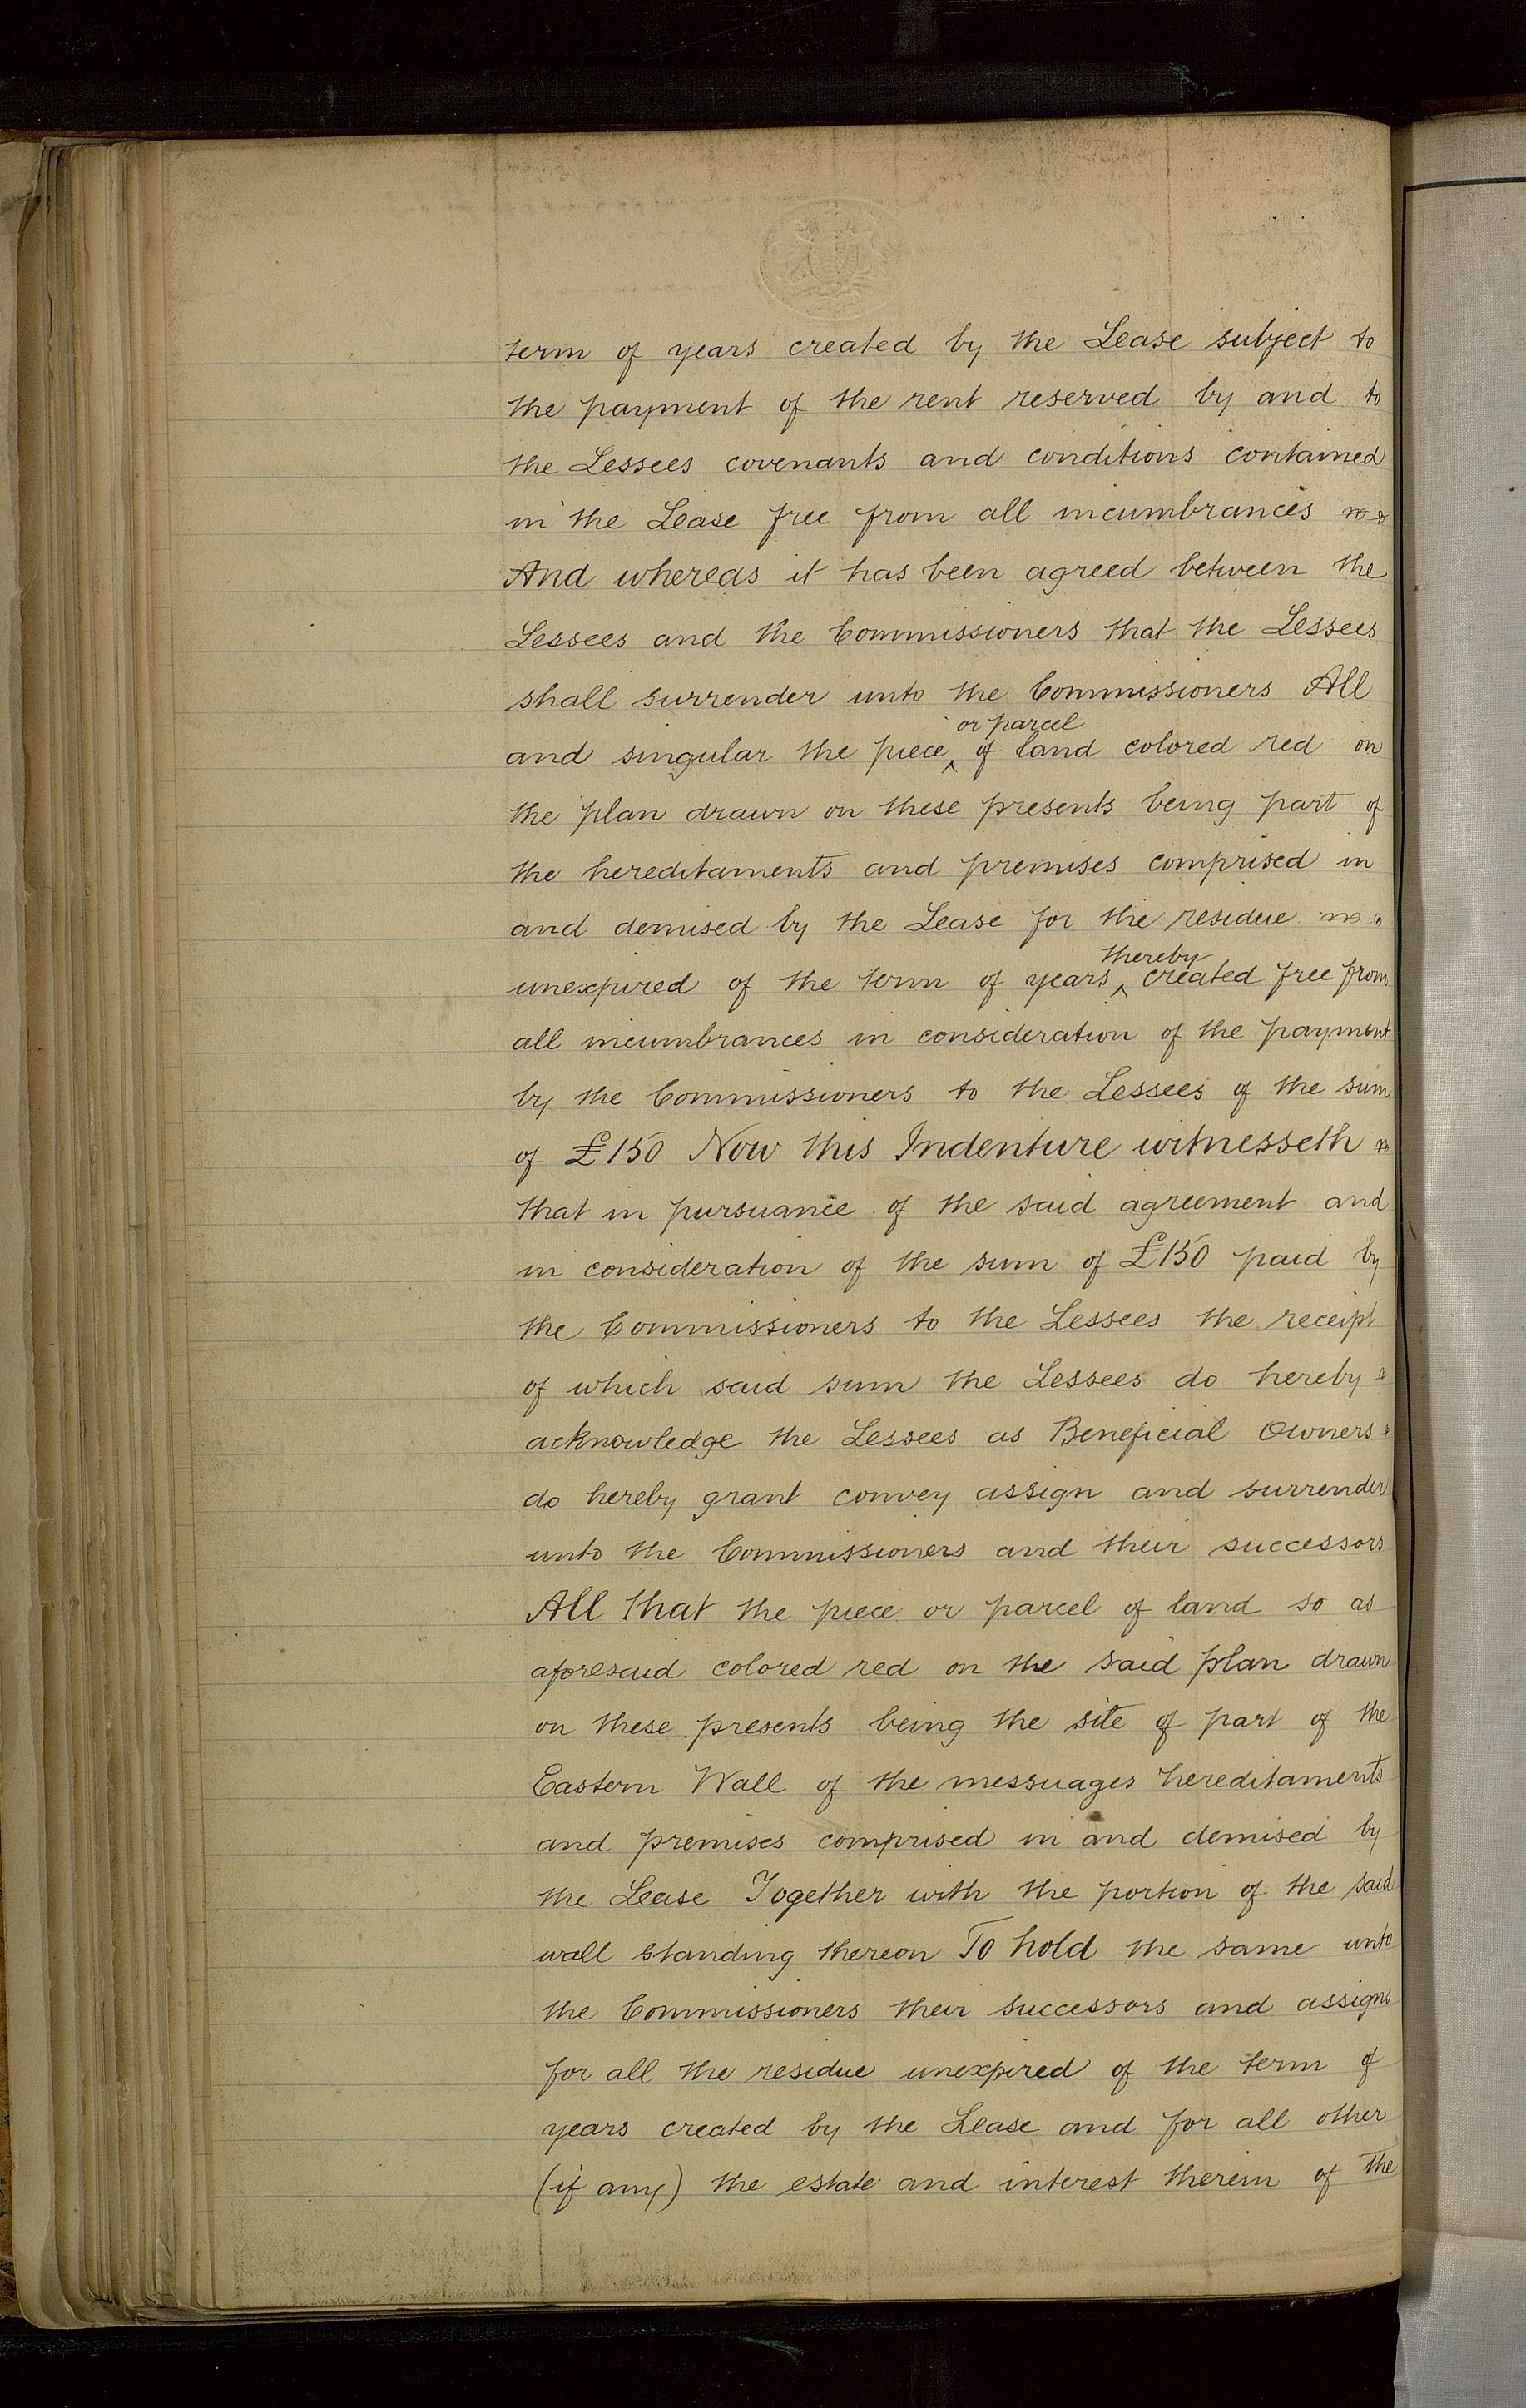 term of years created by the Lease subject to
the payment of the rent reserved by and to
the Lessees covenants and conditions contained
in the Lease free from all incumbrances
And whereas it has been agreed between the
Lessees and the Commissioners that the Lessees
shall surrender unto the Commissioners All
or parcel
and singular the piece ‸ of land colored red on
the plan drawn on these presents being part of
the hereditaments and premises comprised in
and demised by the Lease for the residue
thereby
unexpired of the term of years ‸ created free from
all incumbrances in consideration of the payment
by the Commissioners to the Lessees of the sum
of £150 Now this Indenture witnesseth
that in pursuance of the said agreement and
in consideration of the sum of £150 paid by
the Commissioners to the Lessees the receipt
of which said sum the Lessees do hereby
acknowledge the Lessees as Beneficial Owners
do hereby grant convey assign and surrender
unto the Commissioners and their successors
All that the piece or parcel of land so as
aforesaid colored red on the said plan drawn
on these presents being the site of part of the
Eastern Wall of the messuages hereditaments
and premises comprised in and demised by
the Lease Together with the portion of the said
wall standing thereon To hold the same unto
the Commissioners their successors and assigns
for all the residue unexpired of the term of
years created by the Lease and for all other
(if any) the estate and interest therein of the